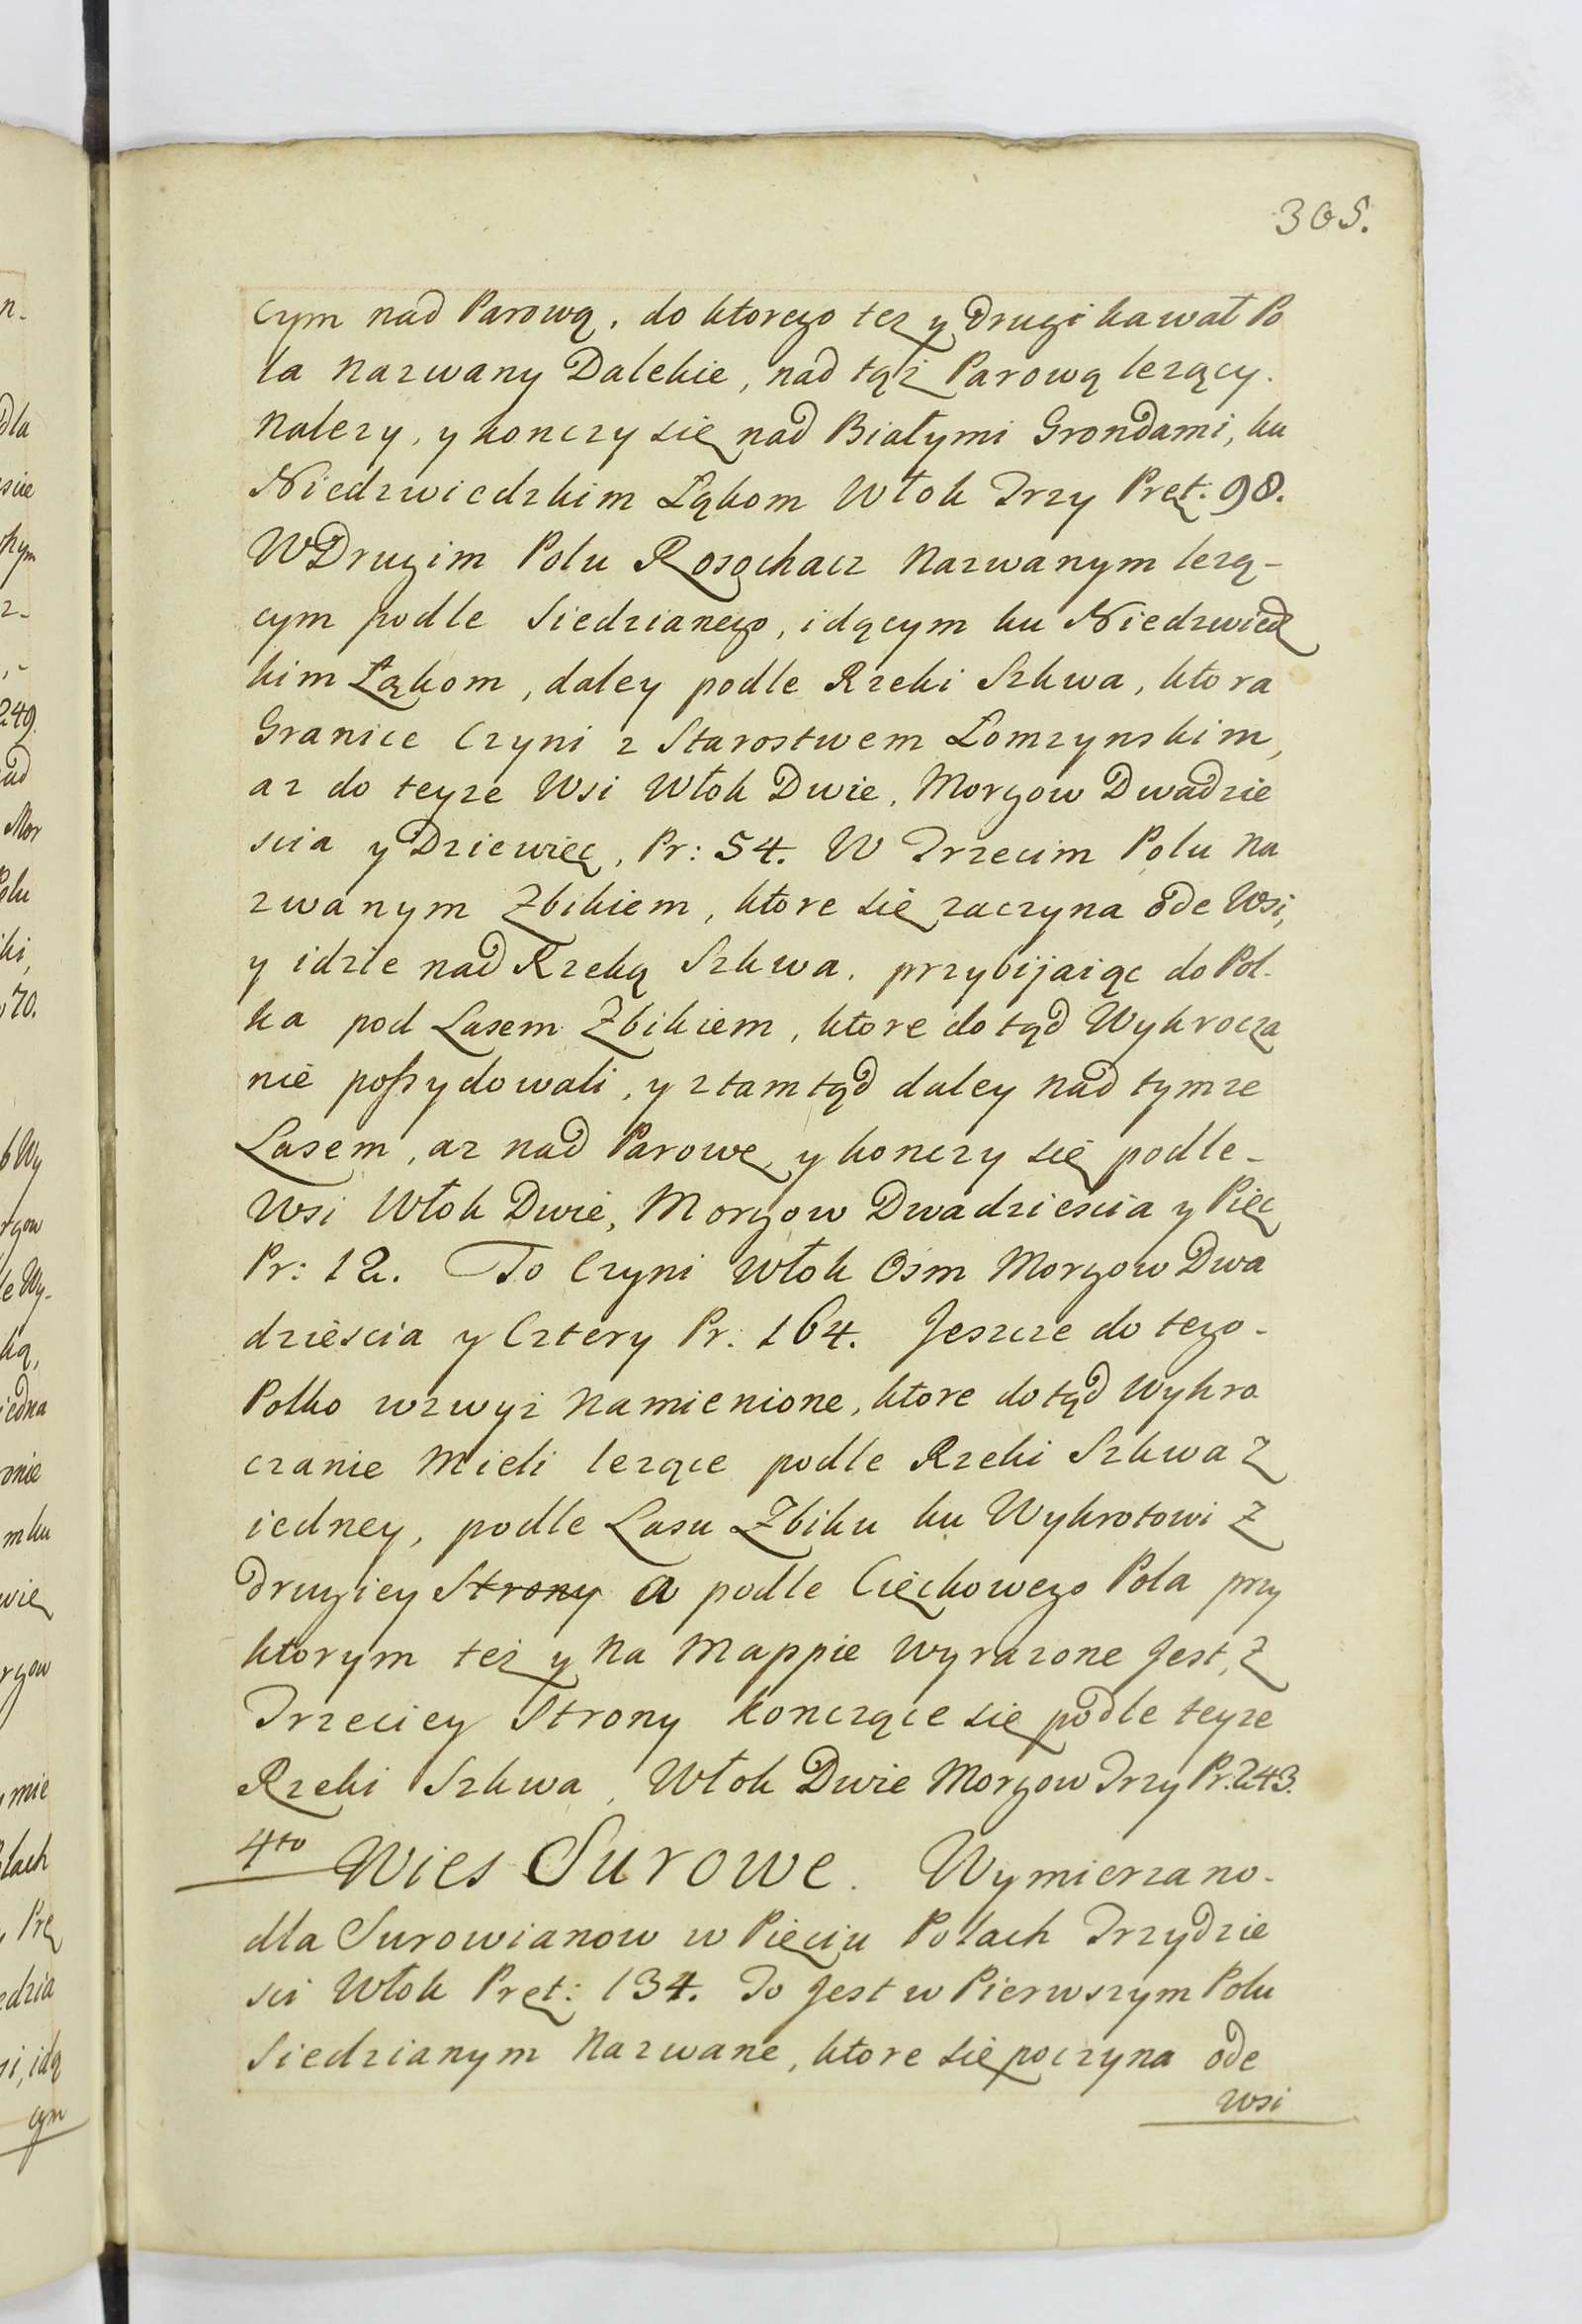 305.
cym nad Parową, do ktorego tez y Drugi kawał Po
la Nazwany Dalekie, nad tąż Parową lezący.
Nalezy, y konczy się nad Białymi Grondami, ku
Niedzwiedzkim Łąkom Włok Trzy Pręt: 98.
W Drugim Polu Rosochacz Nazwanym lezą-
cym podle Siedzianego, idącym ku Niedzwiedz
kim Łąkom, daley podle Rzeki Szkwa, ktora
Granice Czyni z Starostwem Łomzynskim,
az do teyze Wsi Włok Dwie, Morgow Dwadzie
scia y Dziewięc, Pr: 54. W Trzecim Polu Na
zwanym Zbikiem, ktore się zaczyna ode Wsi,
y idzie nad Rzeką Szkwa, przybijaiąc do Pol-
ka pod Lasem Zbikiem, ktore dotąd Wykrocza
nie poßydowali, y ztamtąd daley nad tymze
Lasem, az nad Parowę, y konczy się podle-
Wsi Włok Dwie, Morgow Dwadziescia y Pięc
Pr: 12. To Czyni Włok Osm Morgow Dwa
dziescia y Cztery Pr: 164. Jeszcze do tego-
Polko wzwyz Namienione, ktore dotąd Wykro
czanie Mieli lezące podle Rzeki Szkwa z
iedney, podle Lasu Zbiku ku Wykrotowi z
drugiey Strony a podle Cięckowego Pola przy
ktorym tez y Na Mappie Wyrazone Jest, z
Trzeciey Strony konczące się podle teyze
Rzeki Szkwa, Włok Dwie Morgow Trzy Pr: 243.
4to Wies Surowe. Wymierzano-
dla Surowianow w Pięciu Polach Trzydzie
sci Włok Pręt: 134. To Jest w Pierwszym Polu
Siedzianym Nazwane, ktore się poczyna ode
wsi